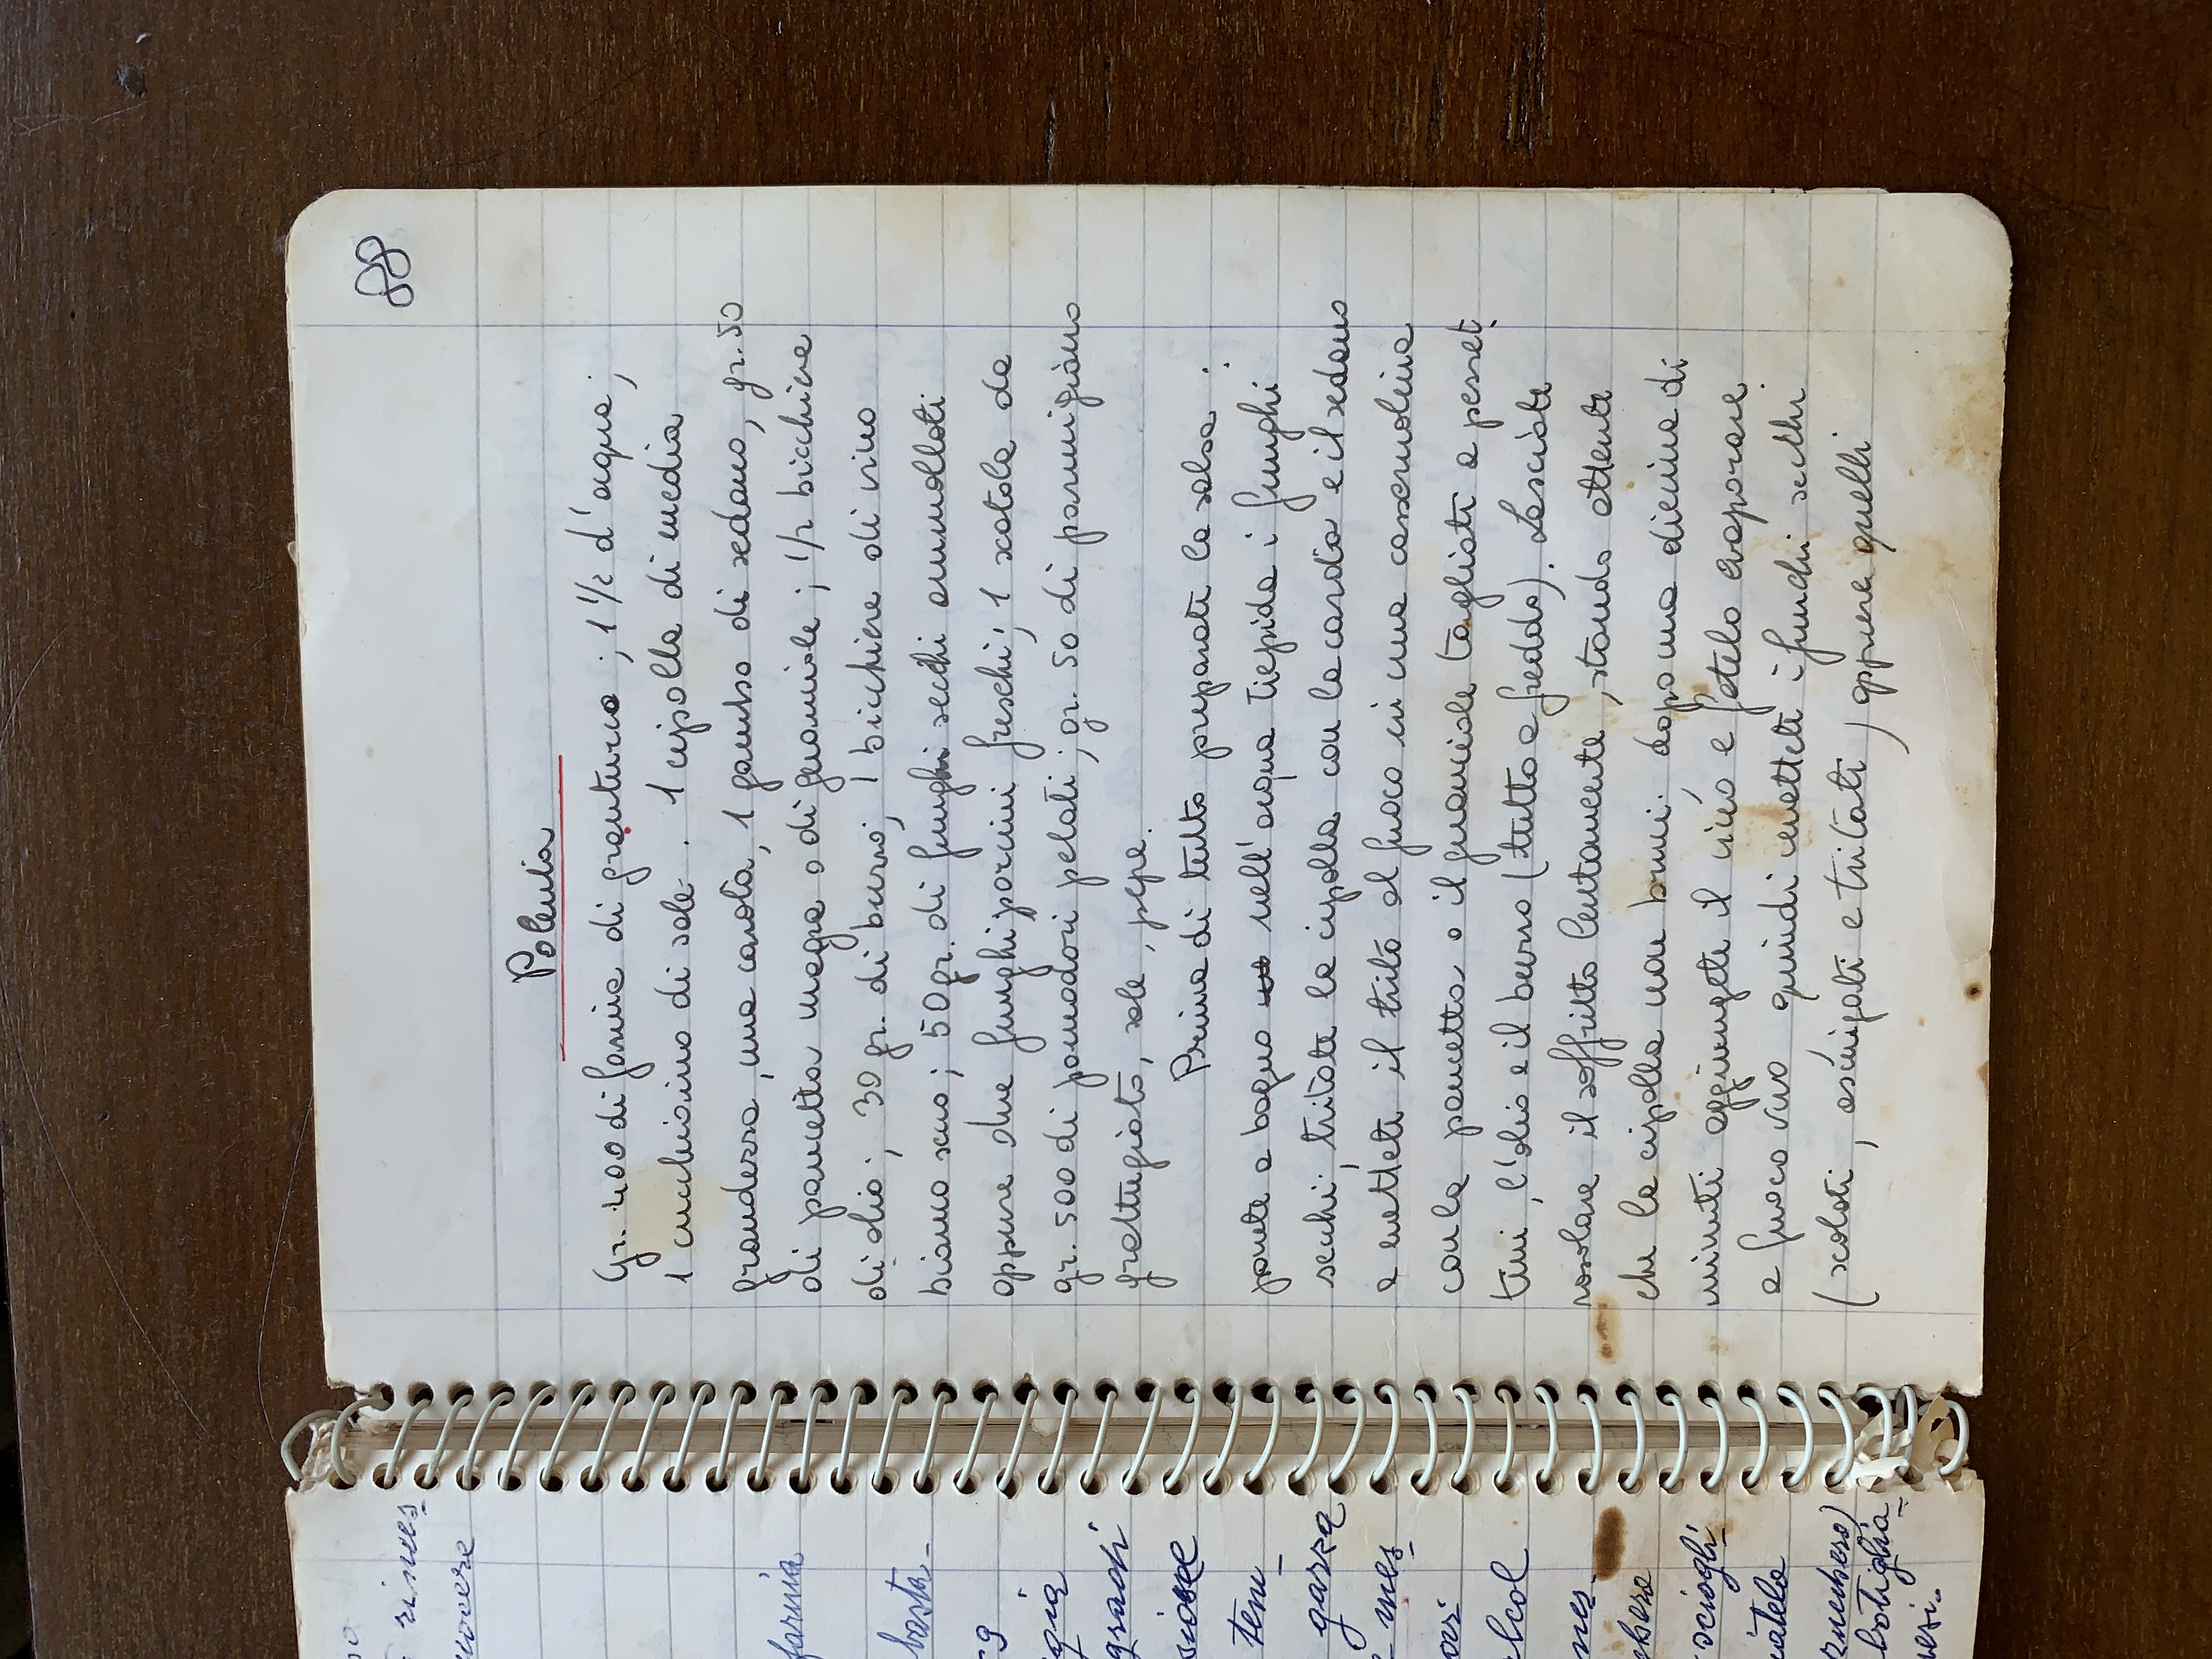 so
rimes-
uocere
farina
basta-
-9
gia
gradi
tem-
garza
mes-
alcol
mes-
sciogli-
zucchero)
botiglia-
mesi.
88
Polenta
Gr. 400 di farina di granturco ; 1 1/2 d'acqua ;
1 cucchiaino di sale . 1 cipolla di media
grandezza, una carota, 1 gambo di sedano, gr. 50
di pancetta magra o di guanciale ; 1/2 bicchiere
di olio ; 30 gr. di burro ; 1 bicchiere di vino
bianco secco ; 50 gr. di funghi secchi ammollati
oppure due funghi porcini freschi ; 1 scatola da
gr. 500 di pomodori pelati ; gr. 50 di parmigiano
grattugiato, sale, pepe.
Prima di tutto preparate la salsa :
ponete a bagno nell'acqua tiepida i funghi
secchi ; tritate la cipolla con la carota e il sedano
e mettete il trito al fuoco in una casseruolina
con la pancetta o il guanciale tagliati a pezzet-
tini, l'olio e il burro (tutto a freddo). Lasciate
rosolare il soffritto lentamente, stando attente
che la cipolla non bruci ; dopo una diecina di
minuti aggiungete il vino e fatelo evaporare
a fuoco vivo, quindi mettete i funghi secchi
(scolati, asciugati e tritati) oppure quelli